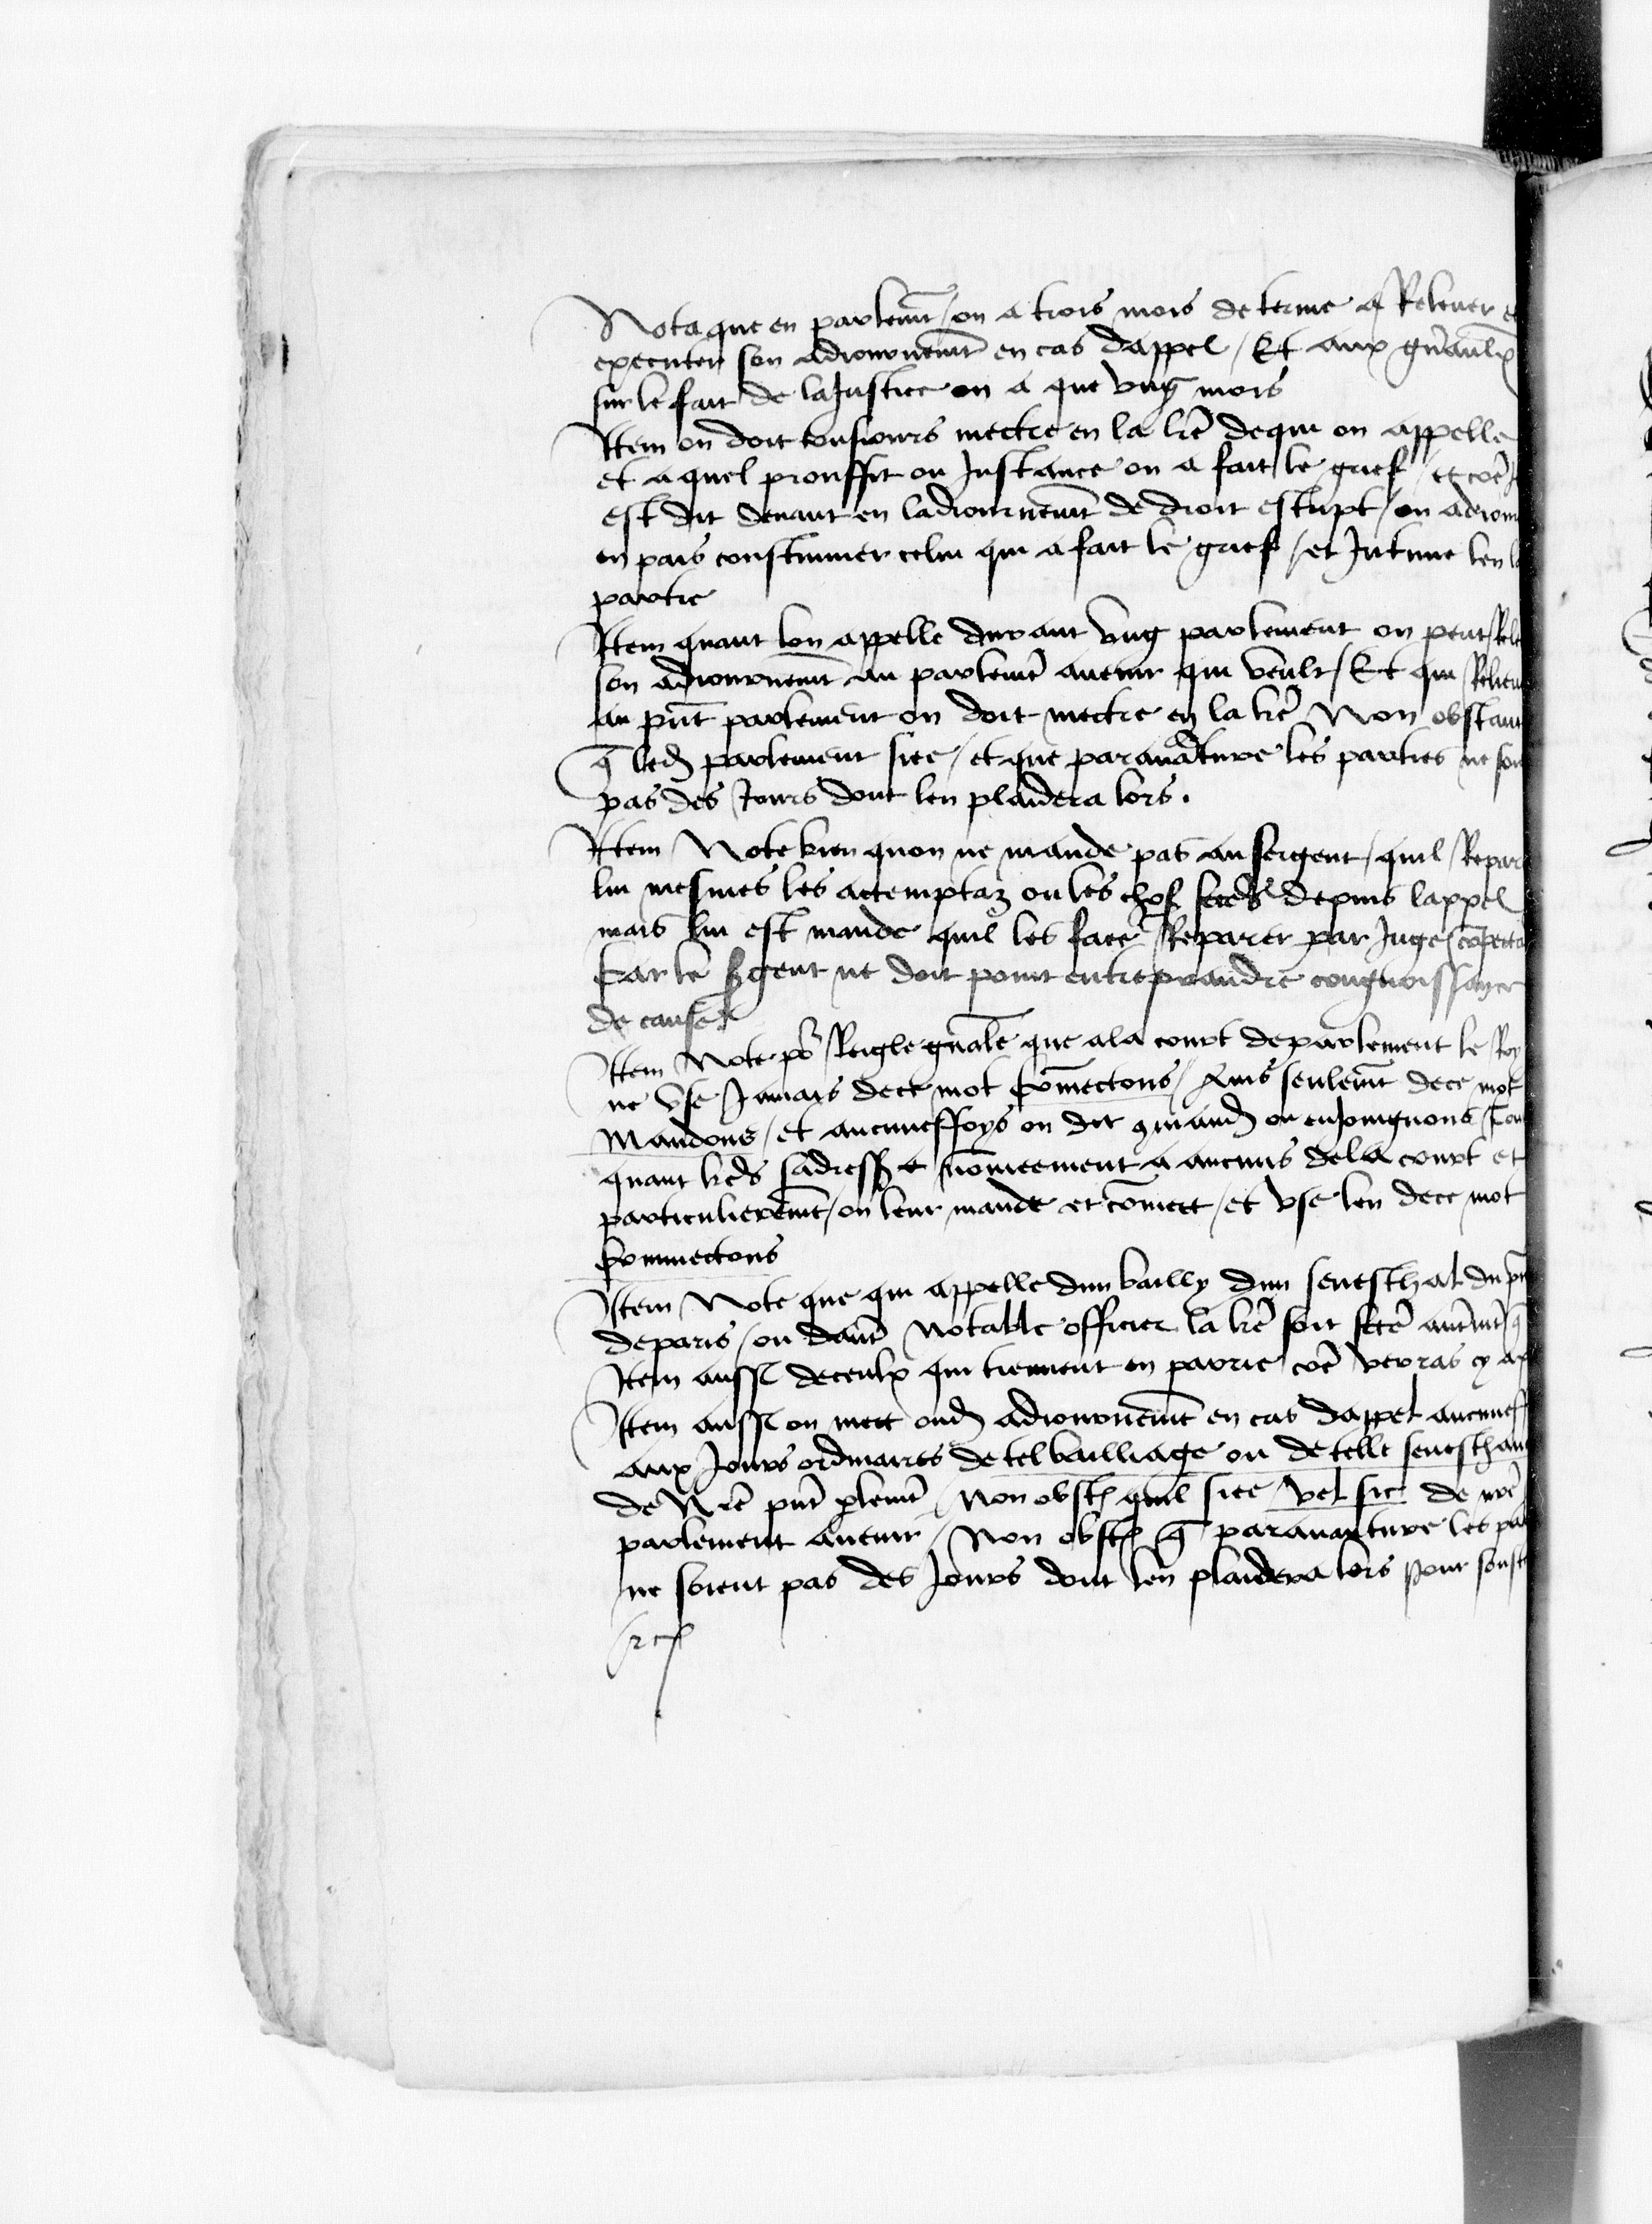 Nota que en parlemt / on a trois mois de terme a Relever e
executer son adiournemt en cas dappel / Et aux gnaulx
sur le fait de la Justice on a que ung mois
Item on doit tousiours mectre en la lre de qui on appelle
et a quel prouffit ou Instance on a fait le grief / et coe
est dit devant en ladiournemt de droit escript / on adiourn
en pais coustumier celui qui a fait le grief / et Intime len la
partie
Item quant lon appelle durant ung parlement on peut Rele
son adiournemt au parlemt avenir qui veult / Et qui Relieu
au pnt parlement on doit mectre en la lre Non obstant
q led parlement siee / et que paravanture les parties ne soi
pas des Jours dont len plaidera lors .
Item Note bien quon ne mande pas au sergent / quil Repar
lui mesmes les actemptaz ou les chos fctes depuis lappel
mais lui est mande quil les face Reparer par Juge competa
Car le sgent ne doit point entreprandre congnoissance
de cause
Item Note po Reigle gnale que a la court de parlement le Roy
ne use Jamais de ce mot Comectons / Ains seulemt de ce mot
Mandons / et aucuneffoys on dit 9mand ou enJoingnons
quant lres sadress nomeement a aucuns de la court et
particulieremt / on leur mande et comect / et use len de ce mot
Commectons
Item Note que qui appelle dun bailly dun seneschal du p
de paris / ou daut Notable officier la lre soit fcte autmt q
Item aussi de ceulx qui tiennent en parrie coe verras cy ap
Item aussi on mect oud adiournemt en cas dappel aucunef
aux Jours ordinaires de tel bailliage ou de telle seneschau
de Nre pnt plemt / Non obst quil siee / vel sic de nre
parlement avenir / Non obst q paravanture les par
ne soient pas des Jours dont len plaidera lors